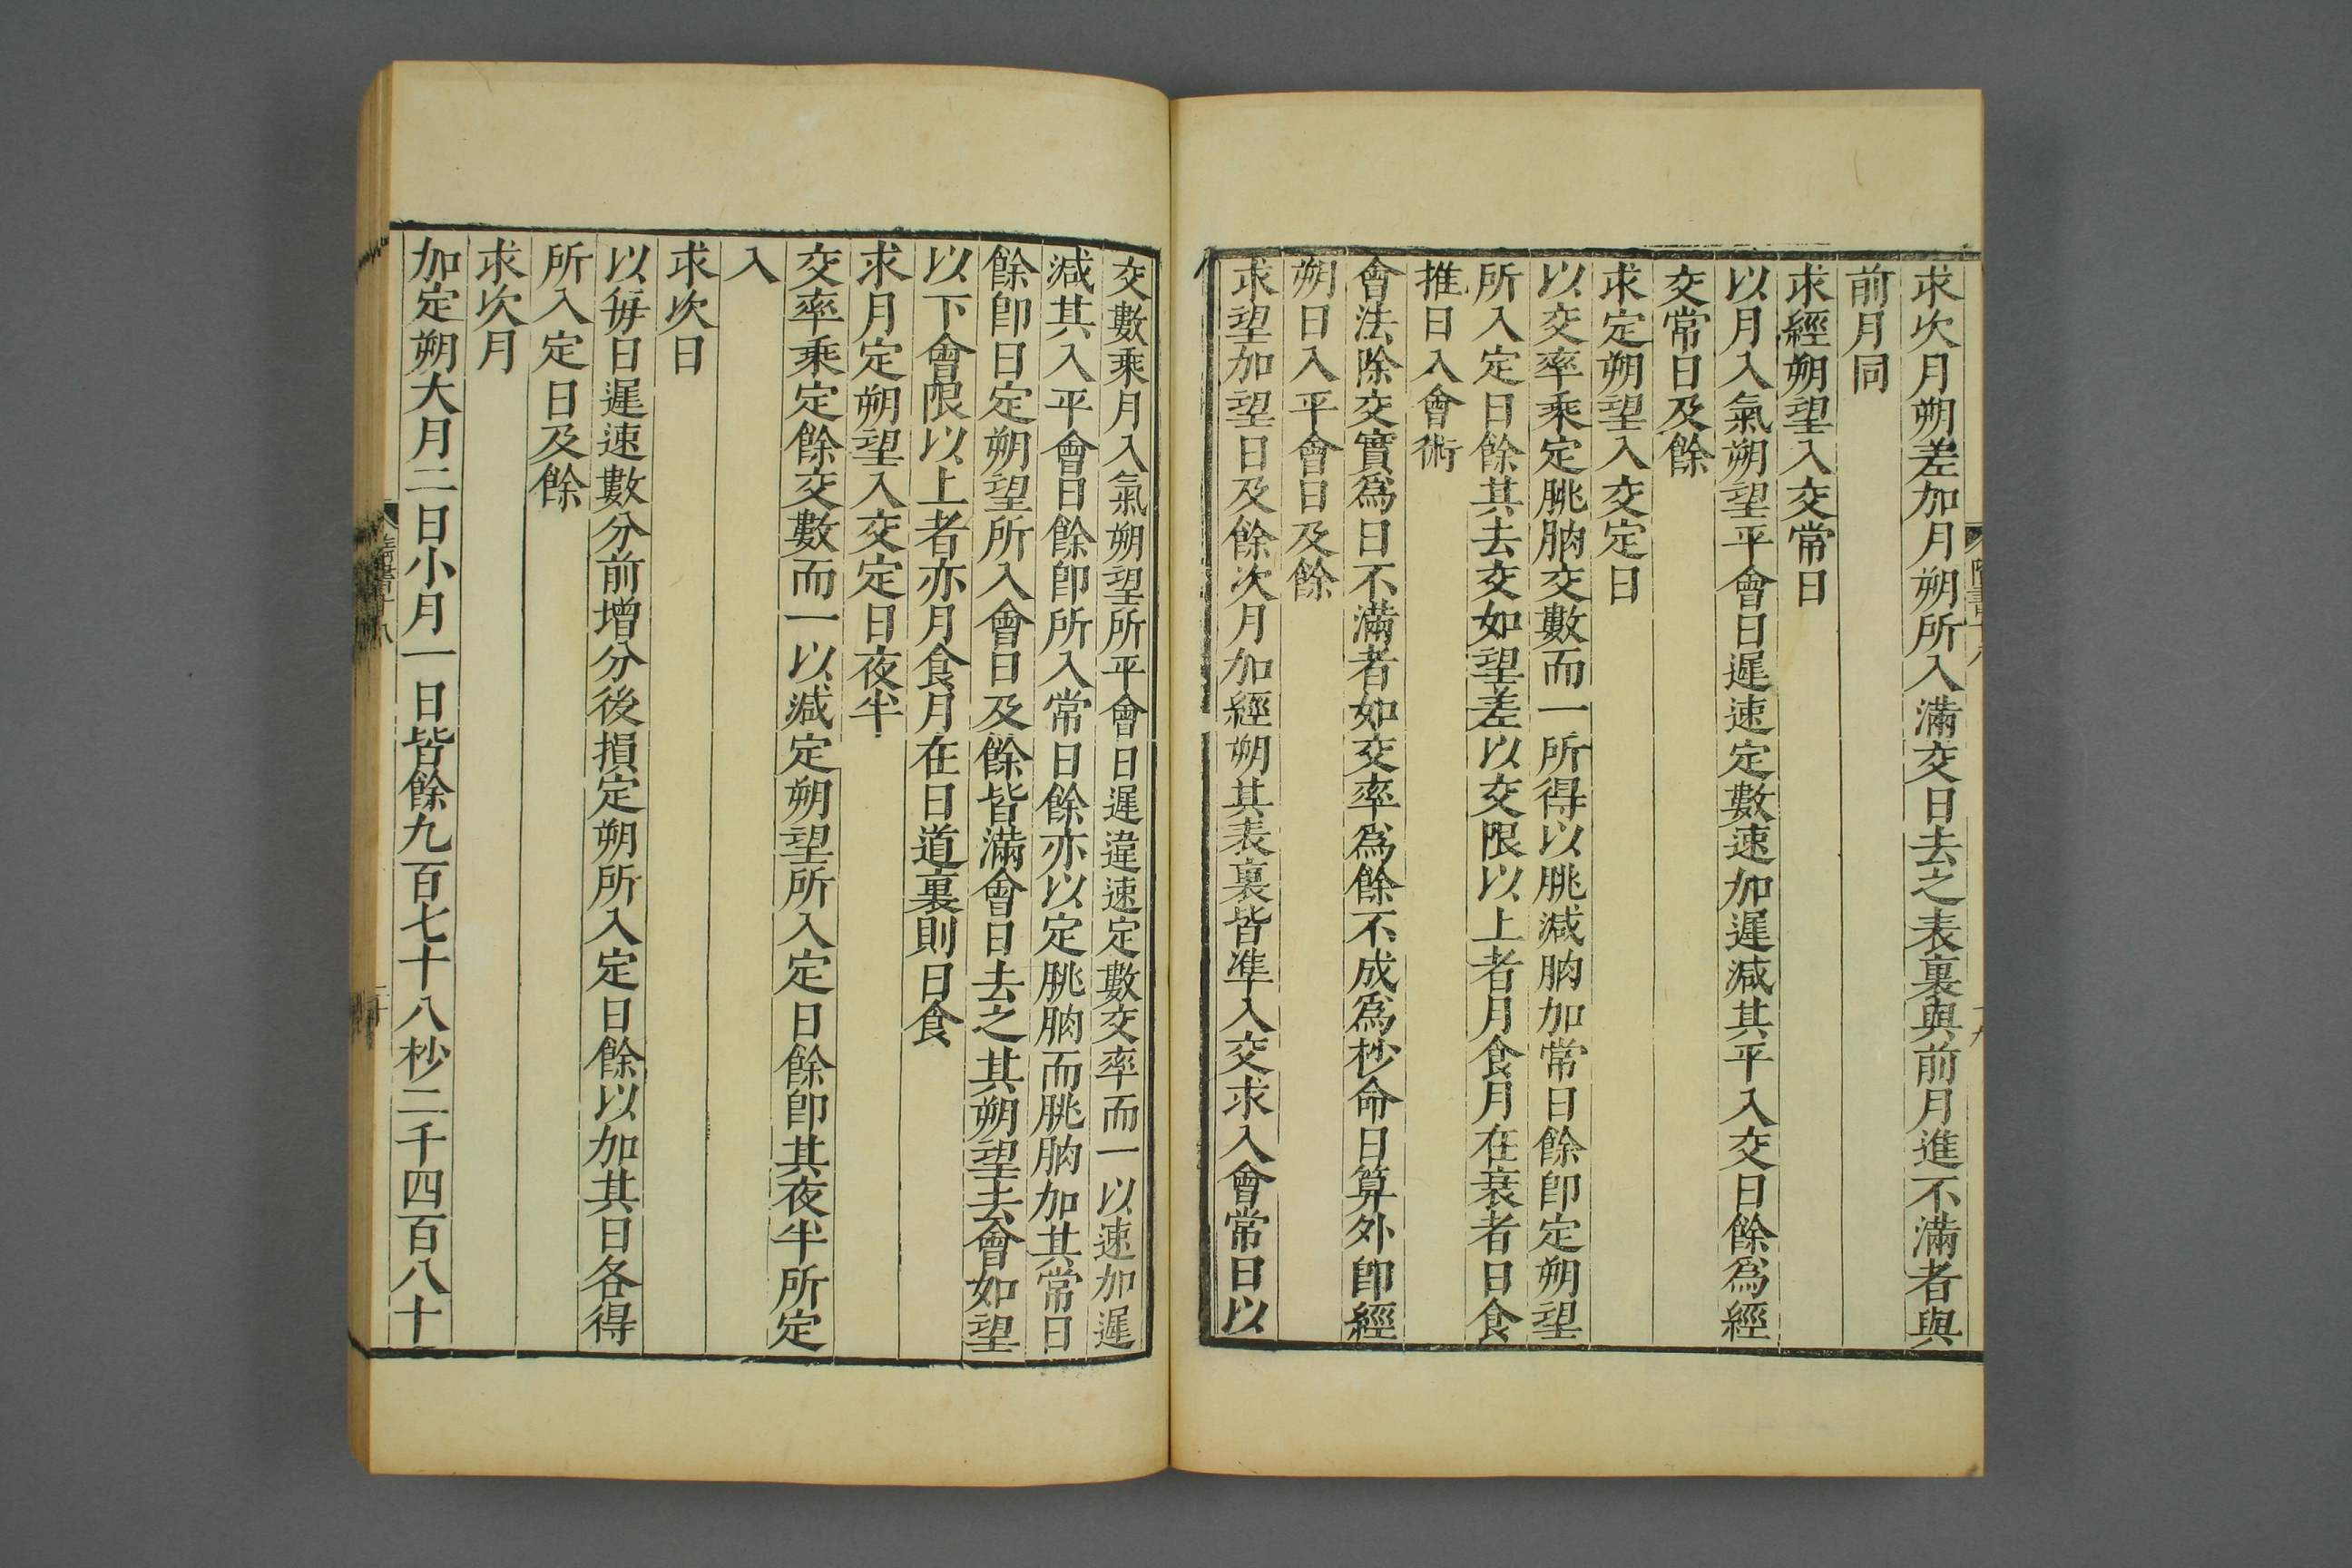 求次月朔差加月朔所入滿交日去之表裏與前月進不滿者與
前月同
求經朔望入交常日
以月入氣朔望平會日遲速定數速加遲減其平入交日餘爲經
交常日及餘
求定朔望入交定日
以交率乘定朓朒交數而一所得以朓減朒加常日餘卽定朔望
所入定日餘其去交如望差以交限以上者月食月在衰者日食
推日入會術
會法除交實爲日不滿者如交率爲餘不成爲杪命日算外卽經
朔日入平會日及餘
求望加望日及餘次月加經朔其表裏皆準入交求入會常日以
交數乘月入氣朔望所平會日遲違速定數交率而一以速加遲
減其入平會日餘卽所入常日餘亦以定朓朒而朓朒加其常日
餘卽日定朔望所入會日及餘皆滿會日去之其朔望去會如望
以下會限以上者亦月食月在日道裏則日食
求月定朔望入交定日夜半
交率乘定餘交數而一以減定朔望所入定日餘卽其夜半所定
入
求次日
以每日遲速數分前增分後損定朔所入定日餘以加其日各得
所入定日及餘
求次月
加定朔大月二日小月一日皆餘九百七十八杪二千四百八十
隋書十八